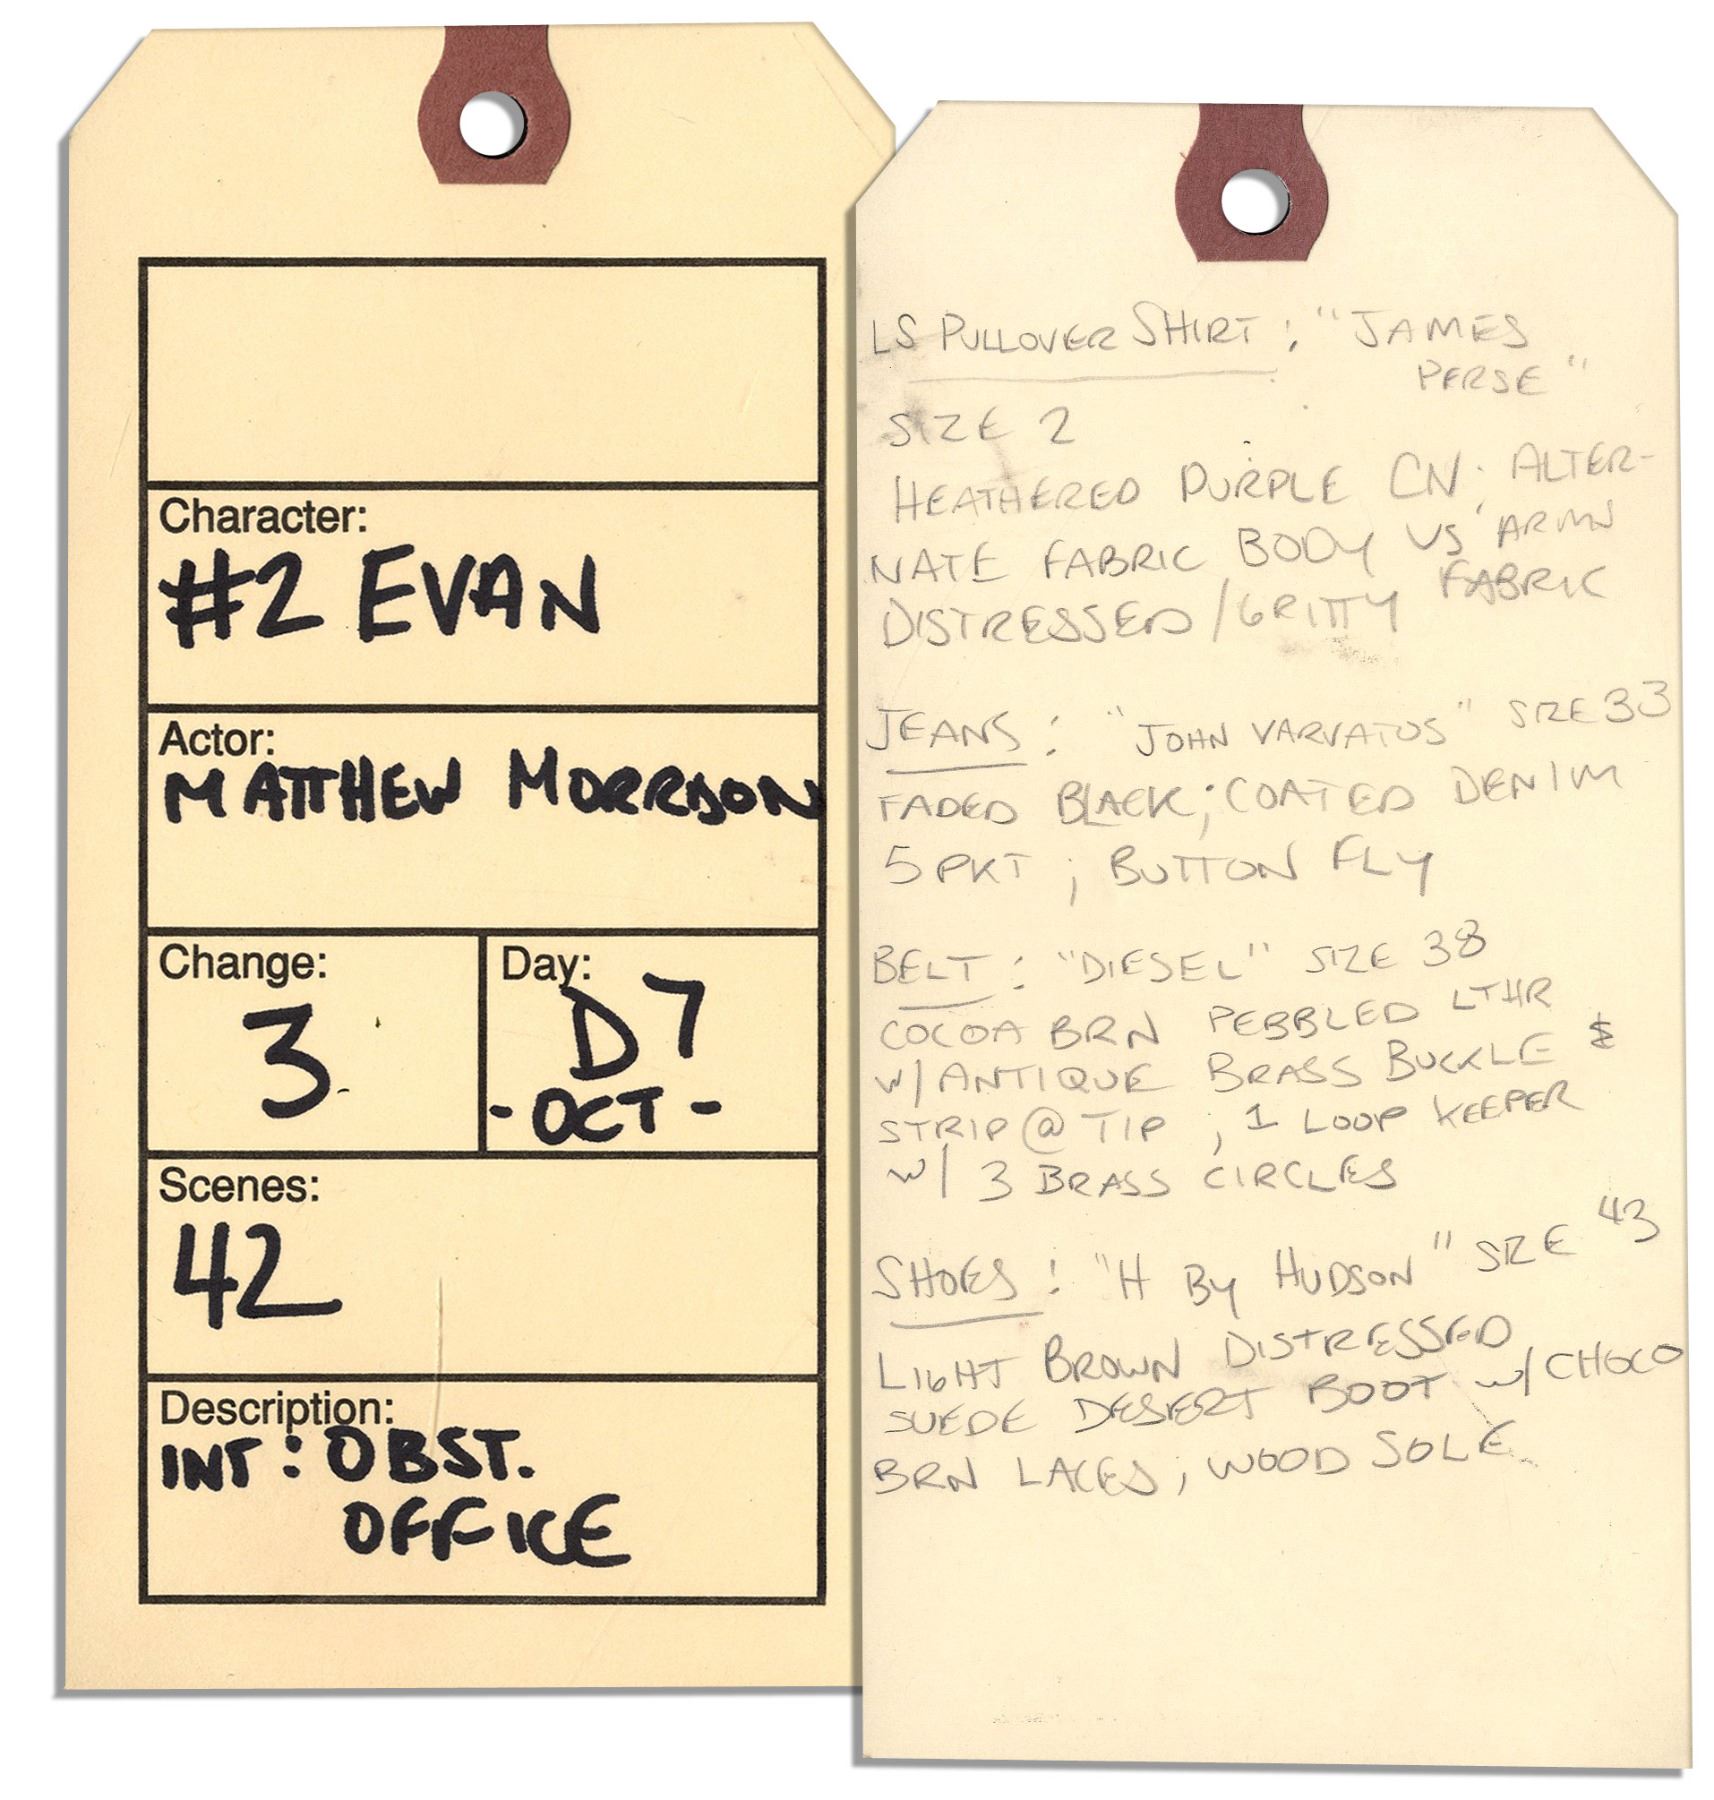 Character:
#2 EVAN
Actor:
MATTHEW MORRISON
Change:
3
Day:
D7
-OCT-
Scenes:
42
Description:
INT: OBST.
OFFICE
LS PULLOVER SHIRT: "JAMES
PERSE"
SIZE 2
HEATHERED PURPLE CN; ALTER-
NATE FABRIC BODY VS ARM
FABRIC
DISTRESSED/GRITTY
JEANS: "JOHN VARVATOS" SIZE 33
FADED BLACK; COATED DENIM
5 PKT; BUTTON FLY
BELT: "DIESEL" SIZE 38
COCOA BRN PEBBLED LTHR
W/ ANTIQUE BRASS BUCKLE &
STRIP @ TIP, 1 LOOP KEEPER
W/ 3 BRASS CIRCLES
SHOES: "H BY HUDSON" SIZE 43
LIGHT BROWN DISTRESSED
SUEDE DESERT BOOT W/ CHOCO
BRN LACES; WOOD SOLE